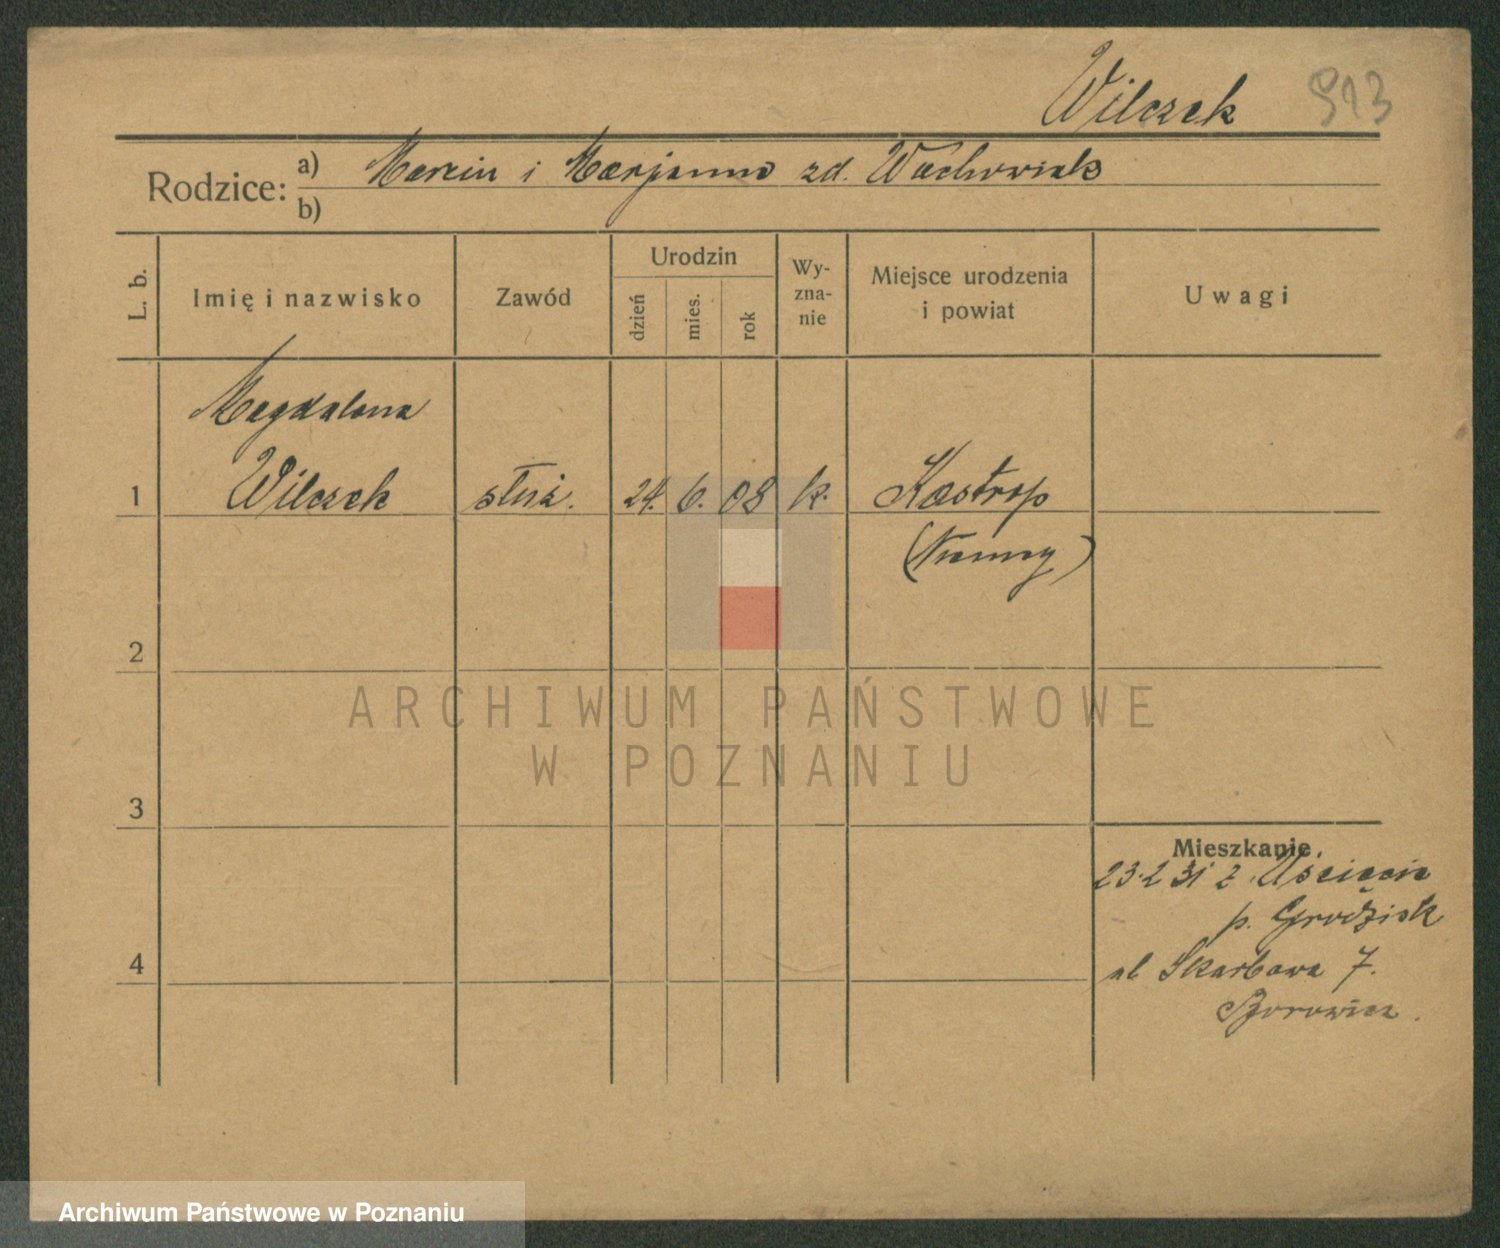 Wilczek 913
Rodzice: a) Marcin i Marjanna zd. Wachowiak
b)
L. b.
Imię i nazwisko
Zawód
Urodzin
dzień
mies.
rok
Wy-
zna-
nie
Miejsce urodzenia
i powiat
Uwagi
Magdalena
1 Wilczek służ. 24. 6. 08 k. Kastrop
(Niemcy)
2
ARCHIWUM PAŃSTWOWE
W POZNANIU
3
Mieszkanie.
23.2 31 z Uścięcic
p. Grodzisk
4 ul Skarbowa 7.
Archiwum Państwowe w Poznaniu